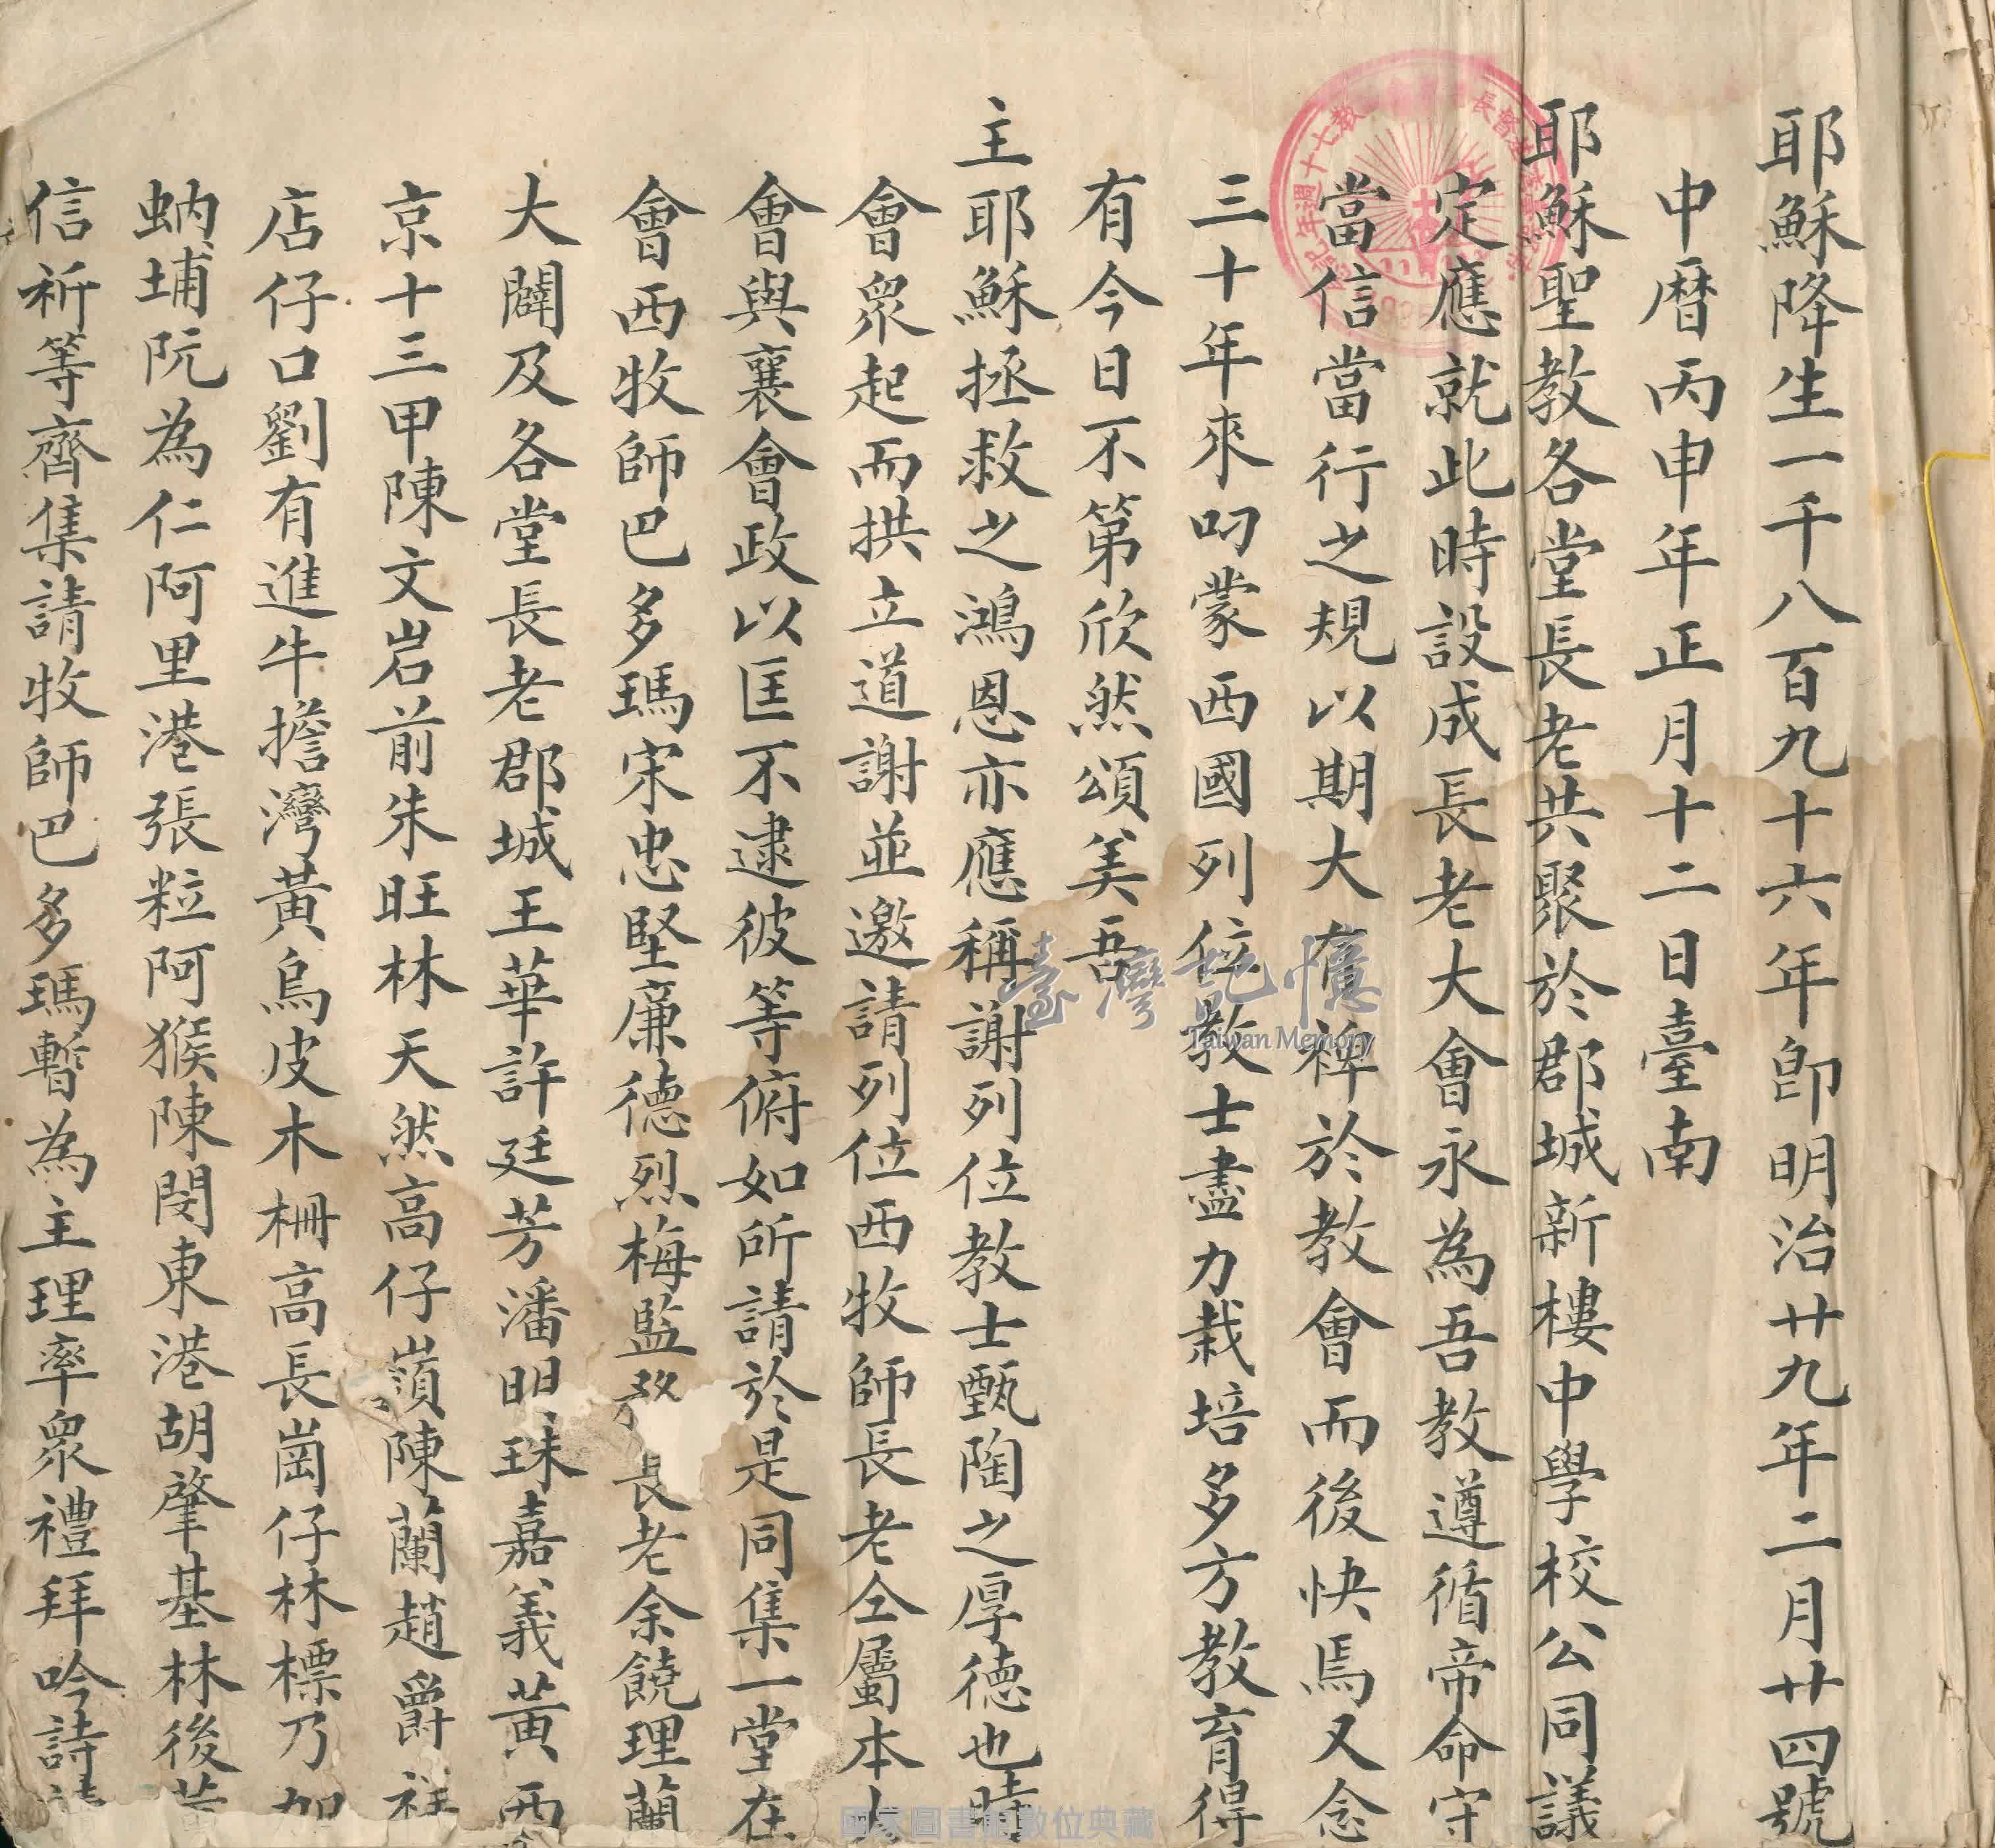 耶穌降生一千八百九十六年卽明治廿九年二月廿四號
中曆丙申年正月十二日臺南
耶穌聖教各堂長老共聚於郡城新樓中學校公同議
定應就此時設成長老大會永為吾教遵循帝命守
當信當行之規以期大有裨於教會而後快焉又念
三十年來叨蒙西國列位教士盡力栽培多方教育得
有今日不第欣然頌美吾
主耶穌拯救之鴻恩亦應稱謝列位教士甄陶之厚德也時
會眾起而拱立道謝並邀請列位西牧師長老仝屬本大
會與襄會政以匡不逮彼等俯如所請於是同集一堂在
會西牧師巴多瑪宋忠堅廉德烈梅監務長老余饒理蘭
大闢及各堂長老郡城王華許廷芳潘明珠嘉義黃西
京十三甲陳文岩前朱旺林天然高仔嶺陳蘭趙爵祥
店仔口劉有進牛擔灣黃烏皮木柵高長崗仔林標乃加
蚋埔阮為仁阿里港張粒阿猴陳閔東港胡肇基林後黃
信祈等齊集請牧師巴多瑪暫為主理率眾禮拜吟詩請
臺灣記憶
Taiwan Memory
國家圖書館數位典藏